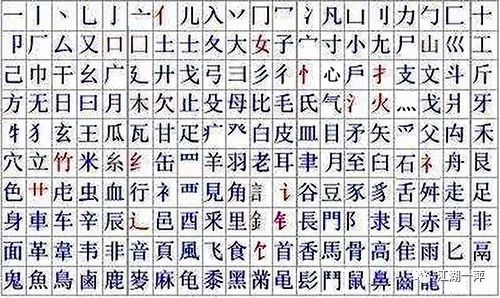 一 丨 丶 乚 亅 亠 亻 儿 入 丷 冂 冖 冫 几 凵 刂 力 勹 匚 十
卩 厂 厶 又 口 囗 土 士 夂 大 女 子 宀 寸 小 尢 尸 山 巛 工
己 巾 干 幺 广 廴 廾 弋 弓 彐 彡 彳 忄 心 戶 扌 支 文 斗 斤
方 无 日 曰 月 木 欠 止 殳 母 比 毛 氏 气 氵 火 灬 戈 爿 牙
牜 犭 玄 王 瓜 瓦 甘 疋 疒 癶 白 皮 皿 目 矛 矢 爫 父 禸 禾
穴 立 竹 米 糸 纟 缶 罒 羊 羽 老 耳 聿 月 至 臼 石 礻 舟 艮
色 艹 虍 虫 血 行 衤 覀 見 角 訁 讠 谷 豆 豕 豸 舌 舛 走 足
身 車 车 辛 辰 辶 邑 酉 釆 里 釒 钅 長 門 阝 隶 貝 赤 青 非
面 革 韋 韦 韭 音 頁 風 飞 食 饣 首 香 馬 骨 高 隹 雨 匕 鬲
鬼 魚 鳥 鹵 鹿 麥 麻 龟 黍 黑 黹 黽 髟 鬥 鼠 鼻 齒 龍
江湖一萍